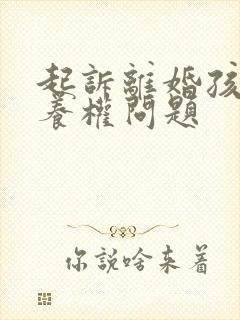 起訴離婚孩
養權問題
你說啥来着